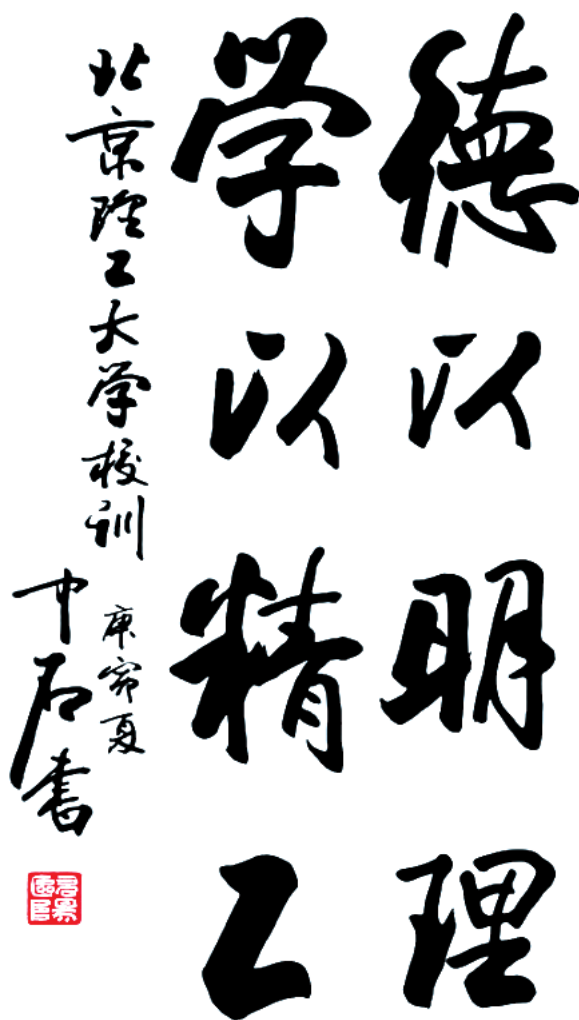 德以明理
学以精工
北京理工大学校训
庚寅夏
中石书